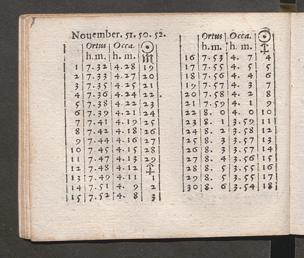 Nouember. 51. 50. 52.
Ortus Occa. ☉
h. m. h. m. ♏
1 7.32 4.28 19
2 7.33 4.27 20
3 7.35 4.25 21
4 7.36 4.24 22
5 7.38 4.22 23
6 7.39 4.21 24
7 7.41 4.19 25
8 7.42 4.18 26
9 7.44 4.16 27
10 7.45 4.15 28
11 7.47 4.13 29
12 7.48 4.12 ♐
13 7.49 4.11 1
14 7.51 4. 9 2
15 7.52 4. 8 3
Ortus Occa. ☉
h. m. h. m. ♐
16 7.53 4. 7 4
17 7.55 4. 5 5
18 7.56 4. 4 6
19 7.57 4. 3 7
20 7.58 4. 2 8
21 7.59 4. 1 9
22 8. 0 4. 0 10
23 8. 1 3.59 11
24 8. 2 3.58 12
25 8. 3 3.57 13
26 8. 3 3.57 14
27 8. 4 3.56 15
28 8. 5 3.55 16
29 8. 5 3.55 17
30 8. 6 3.54 18